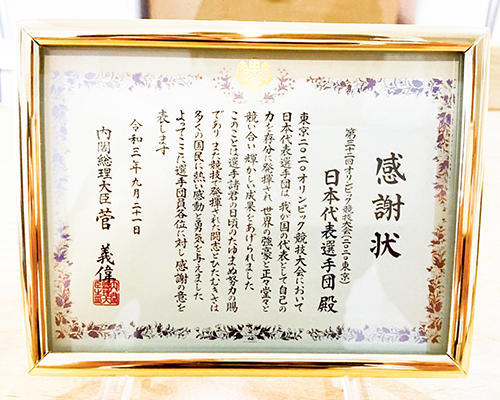 感謝状
第三十二回オリンピック競技大会(二〇二〇/東京)
日本代表選手団 殿
東京二〇二〇オリンピック競技大会において
日本代表選手団は 我が国の代表として自己の
力を存分に発揮され 世界の強豪と正々堂々と
競い合い 輝かしい成果をあげられました
このことは選手諸君の日頃のたゆまぬ努力の賜
であり また競技で発揮された闘志とひたむきさは
多くの国民に熱い感動と勇気を与えました
よってここに選手団員各位に対し 感謝の意を
表します
令和三年九月二十一日
内閣総理大臣 菅 義偉